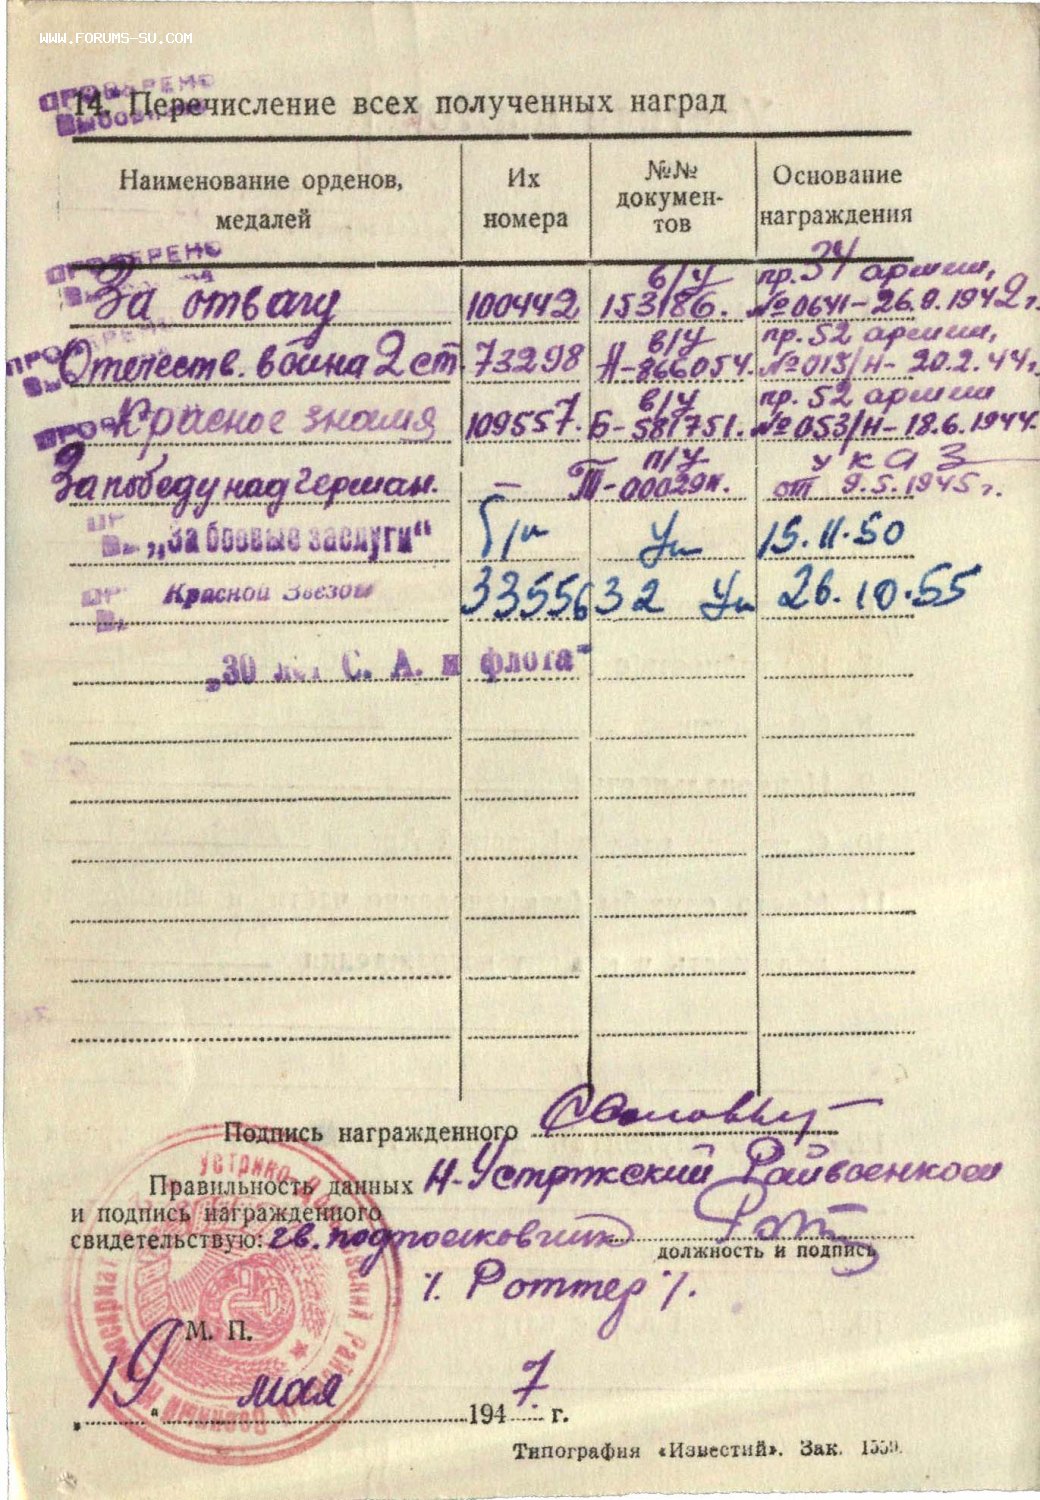 WWW.FORUMS-SU.COM
ПРОВЕРЕНО
14. Перечисление всех полученных наград
Наименование орденов, медалей
Их номера
№№ документов
Основание награждения
ПРОВЕРЕНО
За отвагу 100442 в/у 153186. пр. 34 армии, №0641-26.9.1942 г.
Отечеств. война 2 ст. 73298 в/у А-866054. пр. 52 армии, №015/н-20.2.44 г.
Красное знамя 109557. в/у Б-581751. пр. 52 армии №053/н-18.6.1944.
За победу над герман. — п/у Т-00029 указ от 9.5.1945 г.
„За боевые заслуги“ б/н Уд 15.11.50
Красной Звезды 3355632 Уд 26.10.55
„30 лет С. А. и флота“
Подпись награжденного
Правильность данных Н-Устрикский Райвоенком
и подпись награжденного
свидетельствую: гв. подполковник
должность и подпись
/. Роттер /.
М. П.
„19“ мая 1947 г.
Типография «Известий». Зак. 1559.